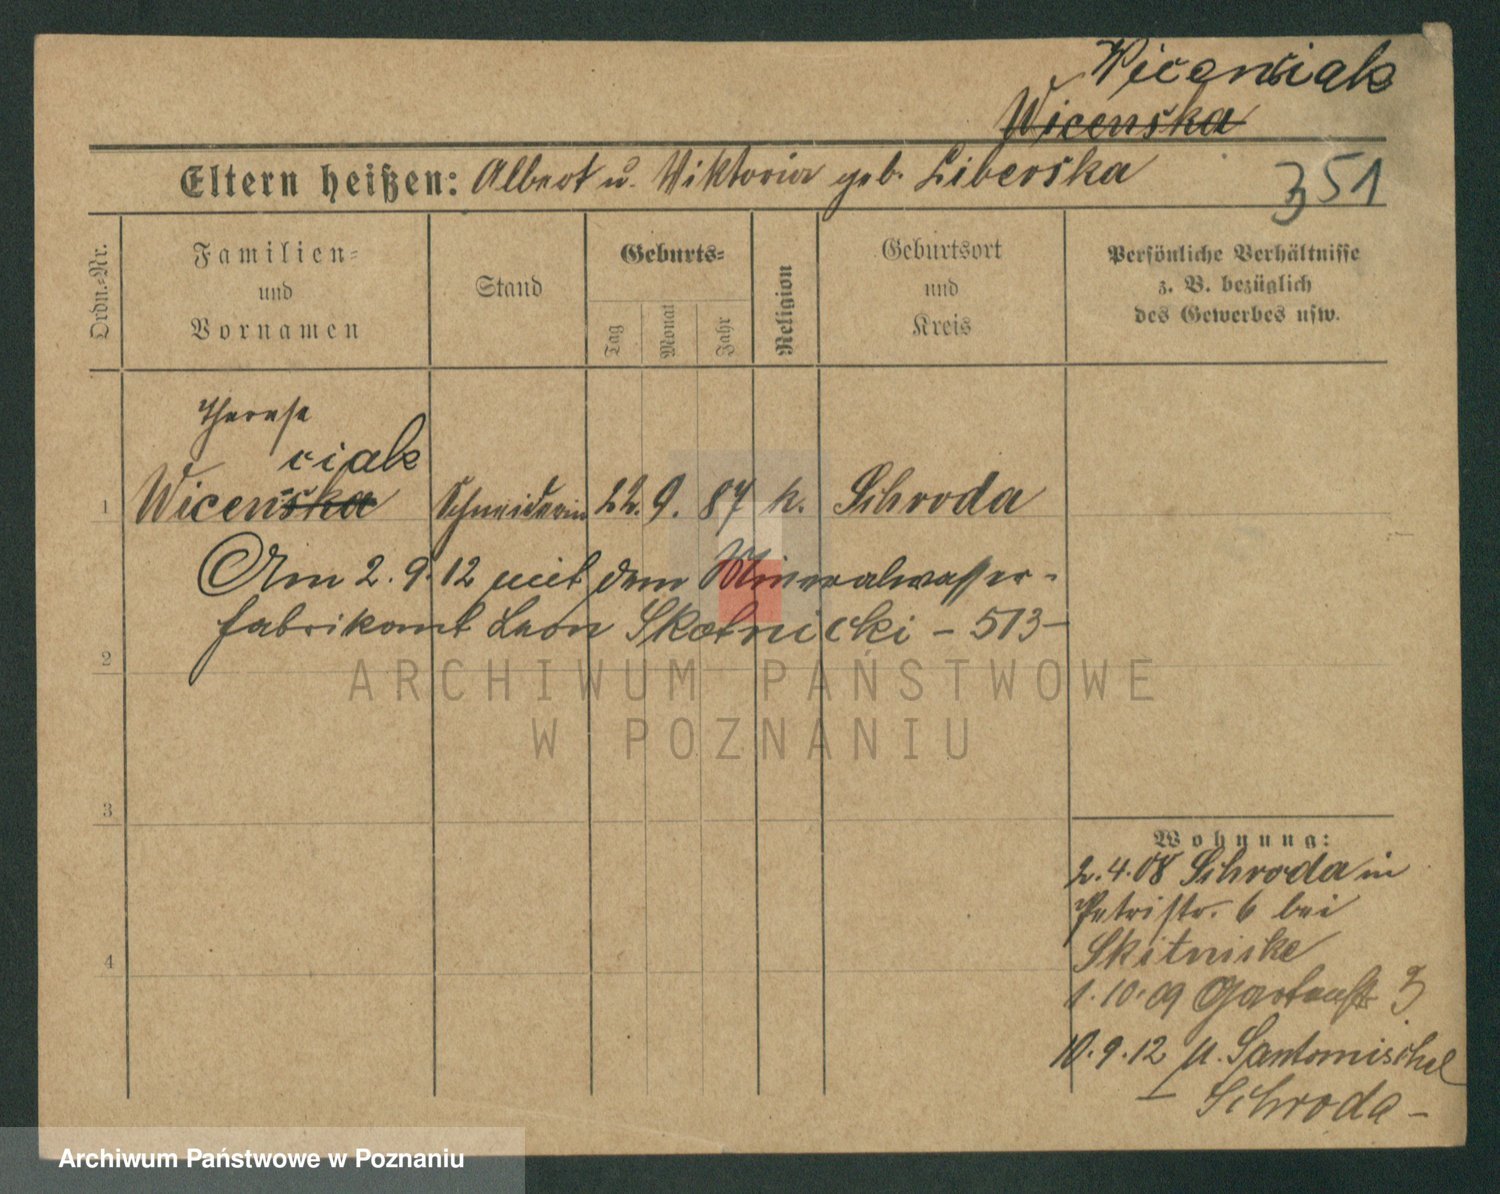 Wicenciak
Wicenska
Eltern heißen: Albert u. Viktoria geb. Liberska
351
Ordn.-Nr.
Familien-
und
Vornamen
Stand
Geburts-
Tag
Monat
Jahr
Religion
Geburtsort
und
Kreis
Persönliche Verhältnisse
z. B. bezüglich
des Gewerbes usw.
Therese
ciak
1 Wicenska Schneiderin 22. 9. 87 k. Schroda
Am 2. 9. 12 mit dem Mineralwasser-
fabrikant Leon Skotnicki - 513-
2
ARCHIWUM PAŃSTWOWE
W POZNANIU
3
Wohnung:
2.4.08 Schroda in
Petristr. 6 bei
Skitniske
4
1.10.09 Gartenstr 3
10.9.12 Santomischel
Schroda -
Archiwum Państwowe w Poznaniu